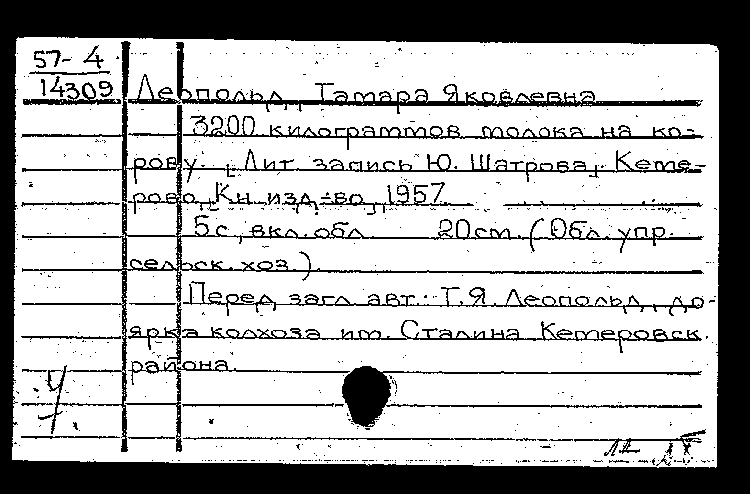 57-4
14309
Леопольд, Тамара Яковлевна
3200 килограммов молока на ко-
рову. [Лит. запись Ю. Шатрова]. Кеме-
рово, [Кн. изд-во], 1957.
5 с., вкл. обл. 20 см. (Обл. упр.
сельск. хоз.)
Перед загл. авт.: Т.Я. Леопольд, до-
ярка колхоза им. Сталина Кемеровск.
района.